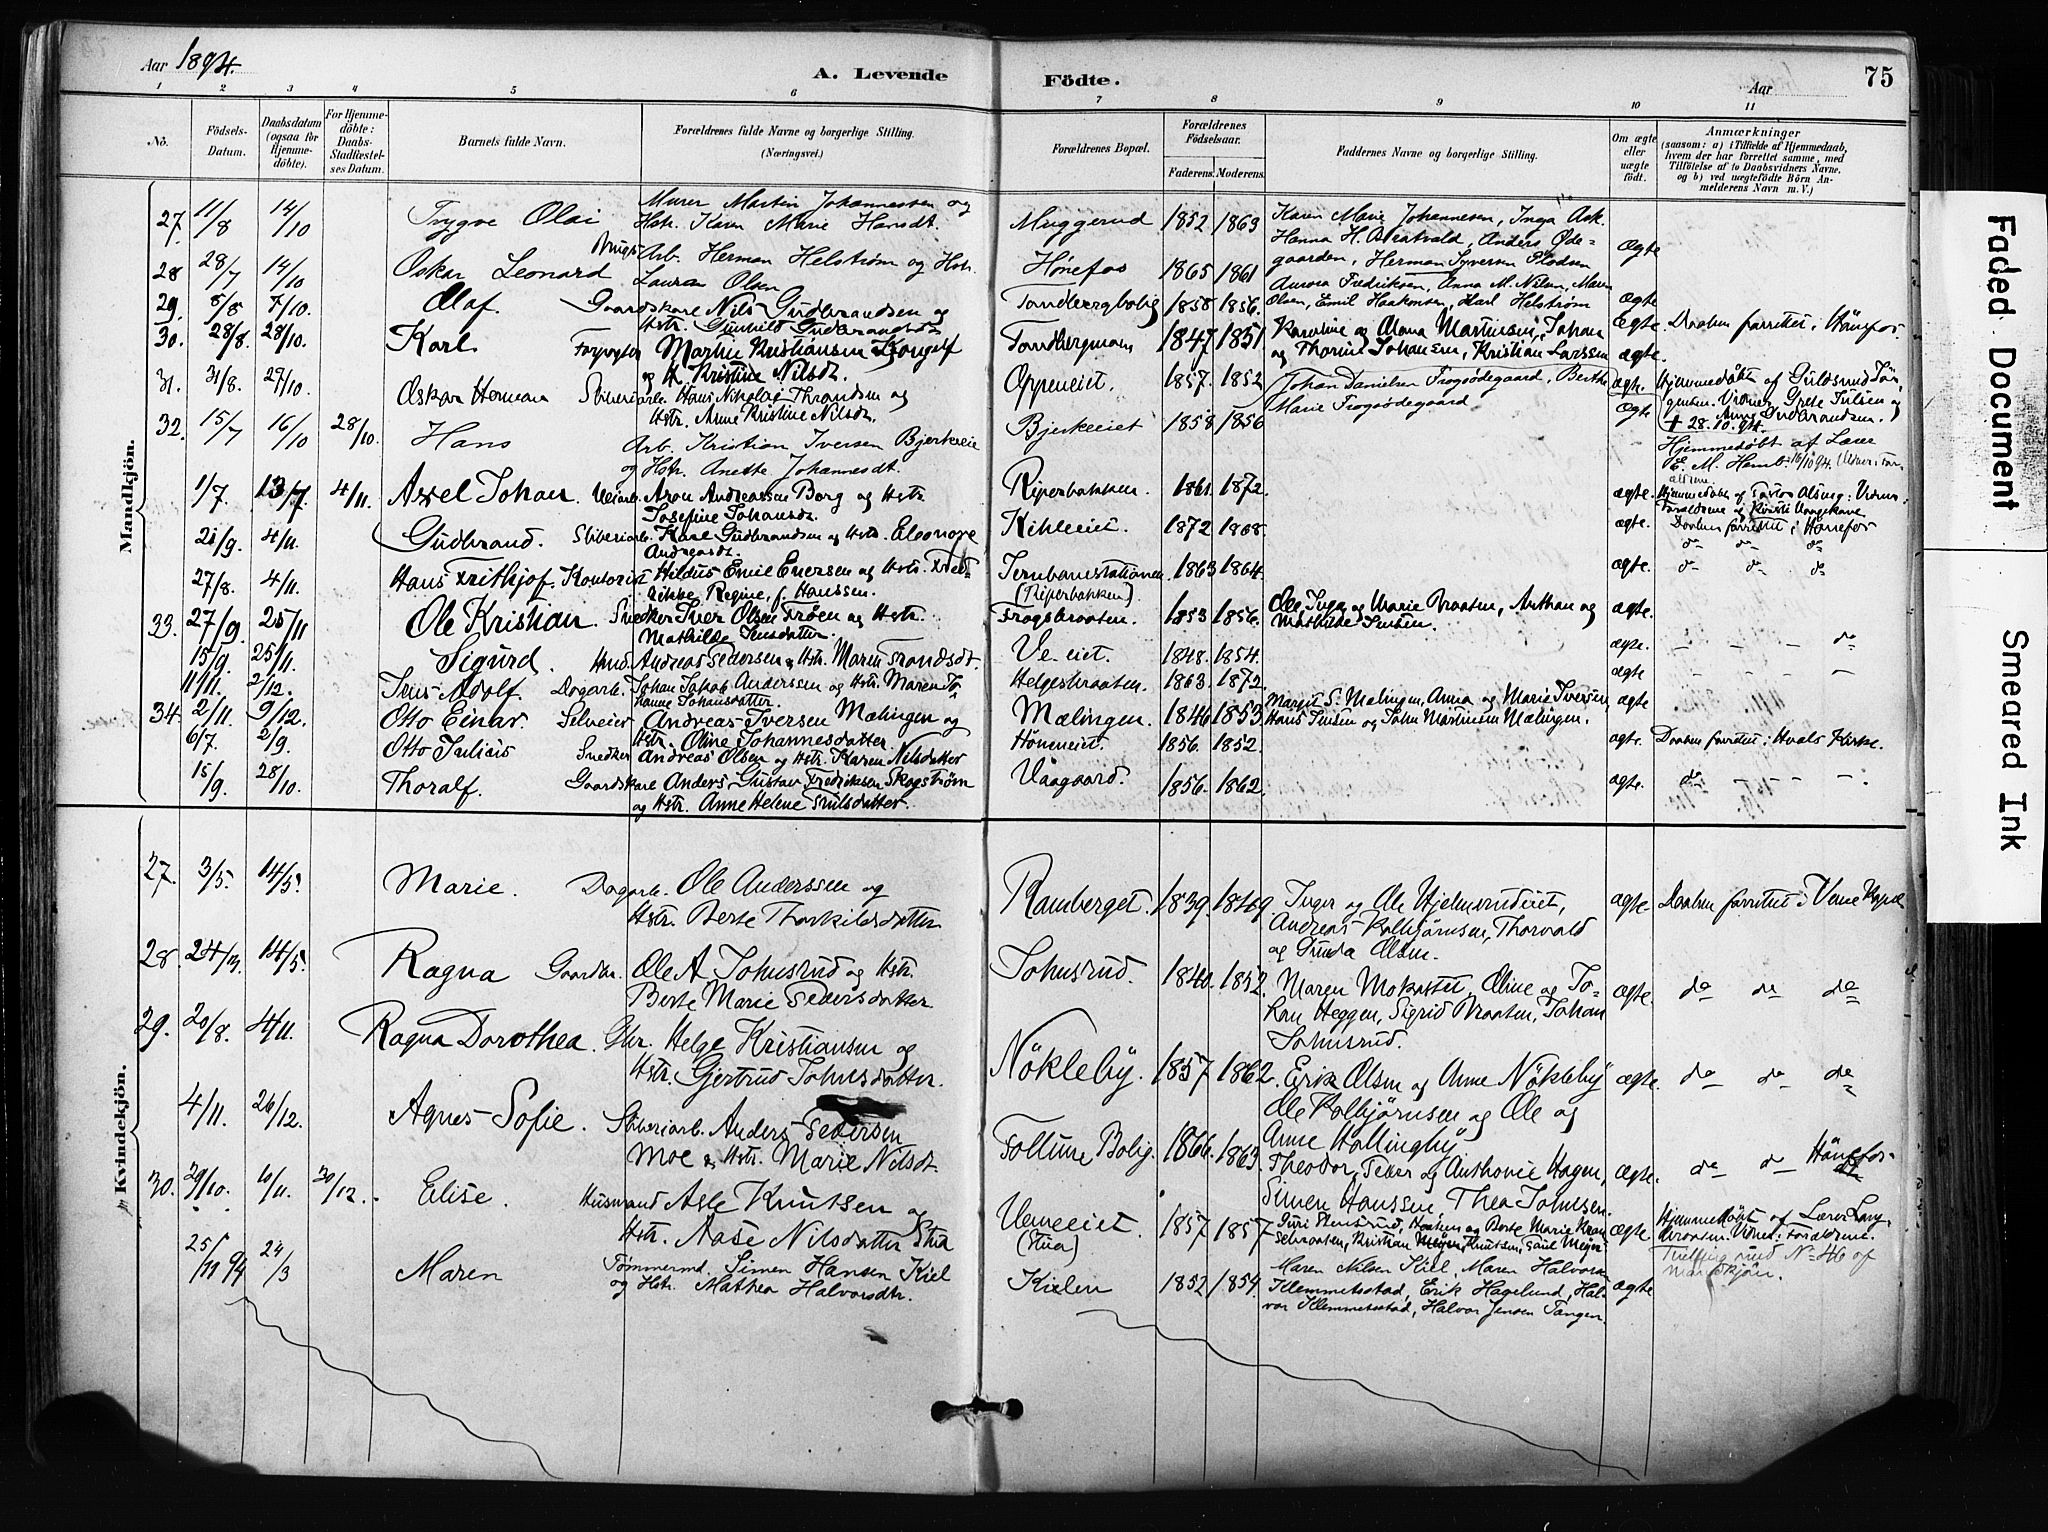 Aar 1894. A. Levende Födte. Aar 75
1 2 3 4 5 6 7 8 9 10 11
No. Födsels-Datum. Daabsdatum (ogsaa for Hjemmedöbte). For Hjemmedöbte: Daabs-Stadfæstelses Datum. Barnets fulde Navn. Forældrenes fulde Navne og borgerlige Stilling. (Næringsvei.) Forældrenes Bopæl. Forældrenes Födselsaar. Faderens. Moderens. Faddernes Navne og borgerlige Stilling. Om ægte eller uægte födt. Anmærkninger (saasom: a) i Tilfælde af Hjemmedaab, hvem der har forrettet samme, med Tilföielse af to Daabsvidners Navne. og b) ved uægtefödte Börn Anmelderens Navn m. V.)
Mandkjön.
27. 11/8 14/10 Trygve Olai Murer Martin Johannessen og Hstr. Karen Marie Hansdt. Muggerud 1852 1863 Karen Marie Johannesen, Inga Ask. Hanna H. Bratvald, Anders Øde-gaarden, Herman Syversen Plodsen ægte
28 28/7 14/10 Oskar Leonard Brugs Arb. Herman Helstrøm og Hstr. Laura Olsen Hønefos 1865 1861 Aurora Fredriksen, Anna M. Nilsen, Maren Olsen, Emil Haakonsen, Karl Helstrøm ægte
29. 5/8 7/10. Olaf Gaardskarl Nils Gudbrandsen og Hstr. Gunhild Gudbrandsdt. Tandbergbolig 1858 1856. ægte Daaben forrettet i Hönefos.
30. 28/8. 28/10. Karl Forpagter Martin Kristiansen og H. Kristine Nilsdt. Tandbergmoen 1847 1851 Karoline og Anna Martinsen, Johan og Thorine Johansen, Kristian Larssen ægte.
31. 31/8. 27/10. Oskar Herman Sliberiarb. Hans Nikolai Thrandsen og Hstr. Anne Kristine Nilsdt. Oppeneiet. 1857. 1852 Johan Danielsen Frogsödegaard, Berthe Marie Frogsödegaard ægte. Hjemmedöbt af Guldsmed Jör-gensen. Vidner Grete Julsen og Anne Gudbrandsen. † 28.10.94.
32. 15/7 16/10 28/10. Hans Arb. Kristian Iversen Bjerkeeie og Hstr. Anette Johannesdt. Bjerkeeiet 1858 1856 ægte Hjemmedöbt af Lærer E. M. Hamb. 16/10 94.
1/7 13/7 4/11. Axel Johan. Veiarb. Aron Andreassen Borg og Hstr. Josefine Johansdt. Riperbakken. 1861 1872. ægte.
21/9. 4/11. Gudbrand. Sliberiarb. Karl Gudbrandsen og Hstr. Eleonore Andreasdt. Kihleeiet. 1872 1868. ægte Daaben forrettet i Hönefos
27/8. 4/11. Hans Frithjof. Kontorist Hildus Emil Evensen og Hstr. Fred-rikke Regine, f. Hanssen. Jernbanestationen (Riperbakken). 1863 1864. ægte. do do do
33. 27/9. 25/11 Ole Kristian. Snedker Iver Olsen Fröen og Hstr. Mathilde Jensdatter. Frogsbraaten. 1853 1856. Ole, Inga og Marie Braaten, Anthon og Mathilde Jensen. ægte.
15/9. 25/11. Sigurd. Husd. Andreas Pedersen & Hstr. Maren Trondsdt. Ve-eiet. 1848. 1854. ægte. – – – do
11/11. 2/12. Jens Adolf. Dagarb. Johan Jakob Anderssen og Hstr. Maren Jo-hanne Johansdatter. Helgesbraaten. 1863. 1872. ægte – – – –
34. 2/11. 9/12. Otto Einar. Selveier Andreas Iversen Mælingen og Hstr. Oline Johannesdatter. Mælingen. 1846 1853 Margit S. Mælingen, Anna og Marie Iversen, Hans Jensen og John Martinsen Mælingen. ægte
6/7. 2/9. Otto Julius Snedker Andreas Olsen og Hstr. Karen Nilsdatter Höneneiet. 1856. 1852. ægte. Daaben forrettet i Hvals Kirke.
15/9. 28/10. Thoralf. Gaardskarl Anders Gustav Fredriksen Skogström og Hstr. Anne Helene Trulsdatter. Vaagaard. 1856. 1862. ægte. do – – –
Kvindekjön.
27. 3/5. 14/5. Marie. Dagarb. Ole Anderssen og Hstr. Berte Thorkildsdatter Ramberget. 1839. 1849 Inger og Ole Hjelmerudeiet, Andreas Kolbjörnsen, Thorvald og Gunda Olsen. ægte. Daaben forrettet i Veme Kapel
28. 24/3. 14/5. Ragna Gaardbr. Ole A Johnsrud og Hstr. Berte Marie Pedersdatter Johnsrud. 1840. 1852. Maren Moksstet, Oline og Jo-han Heggen, Sigrid Braaten, Johan Johnsrud. ægte. do do do
29. 20/8. 4/11. Ragna Dorothea. Gbr. Helge Kristiansen og Hstr. Gjertrud Johnsdatter. Nökleby. 1857 1862. Erik Olsen og Anne Nökleby Ole Kolbjörnsen og Ole og Anne Hallingby ægte. do do do
4/11. 26/12. Agnes Sofie. Sliberiarb. Anders Pedersen Moe & Hstr. Marie Nilsdt. Follum Bolig. 1866. 1863. Theodor, Peter og Anthonie Hagen, Simen Hanssen, Thea Johnsen. ægte. do do Hönefos
30. 29/10. 10/11. 30/12. Elise. Husmand Asle Knutsen og Hstr. Aase Nilsdatter Stua Vemeeiet. (Stua) 1857 1857 Guri Stensrud, Haaken og Berte Marie Kran-sebraaten, Kristian Meyer, Knutsen, Paul Meyer ægte Hjemmedöbt af Lærer Lang-braaten. Vidner: Forældrene.
25/11 94 24/3 Maren Tømmermd. Simen Hansen Kiel og Hstr. Mathea Halvorsdtr. Kielen 1852 1854. Maren Nilsen Kiel, Maren Halvorsen Klemmetsstad, Erik Hagelund, Hal-vor Klemmetsstad, Halvor Jensen Tangen. ægte Tvilling med No 46 af mandkjön.
Faded Document
Smeared Ink